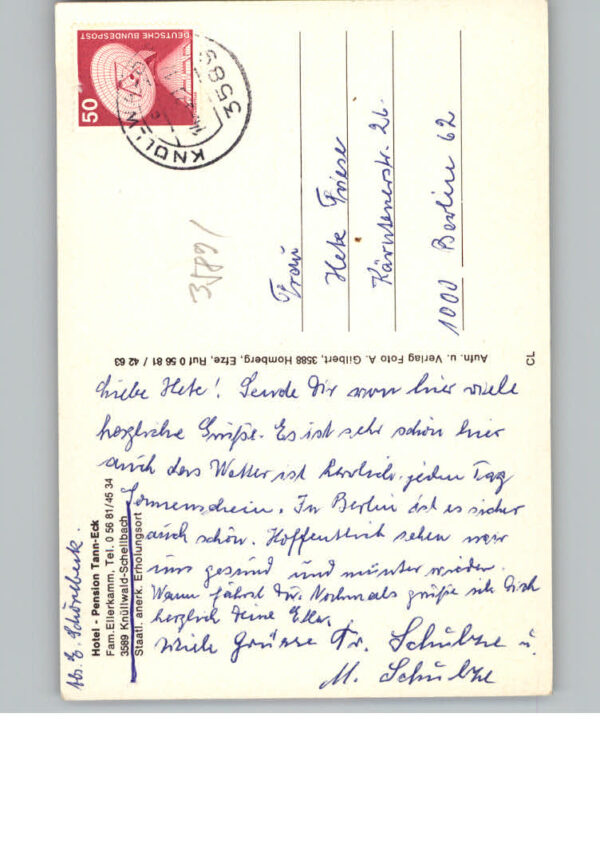 DEUTSCHE BUNDESPOST
50
3589
KNÜLLW
3589
Frau
Hete Friese
Kärntenerstr. 26.
1000 Berlin 62
Aufn. u. Verlag Foto A. Gilbert, 3588 Homberg, Efze, Ruf 0 56 81 / 42 63
CL
Liebe Hete! Sende Dir von hier viele
herzliche Grüße. Es ist sehr schön hier
auch das Wetter ist herrlich. jeden Tag
Sonnenschein. In Berlin ist es sicher
auch schön. Hoffentlich sehen wir
uns gesund und munter wieder.
Wann fährst Du. Nochmals grüße ich Dich
herzlich Deine Ella.
Viele Grüsse Fr. Schultze u.
M. Schultze
Abs. E. Schönebeck.
Hotel - Pension Tann-Eck
Fam. Ellerkamm, Tel. 0 56 81/45 34
3589 Knüllwald-Schellbach
Staatl. anerk. Erholungsort